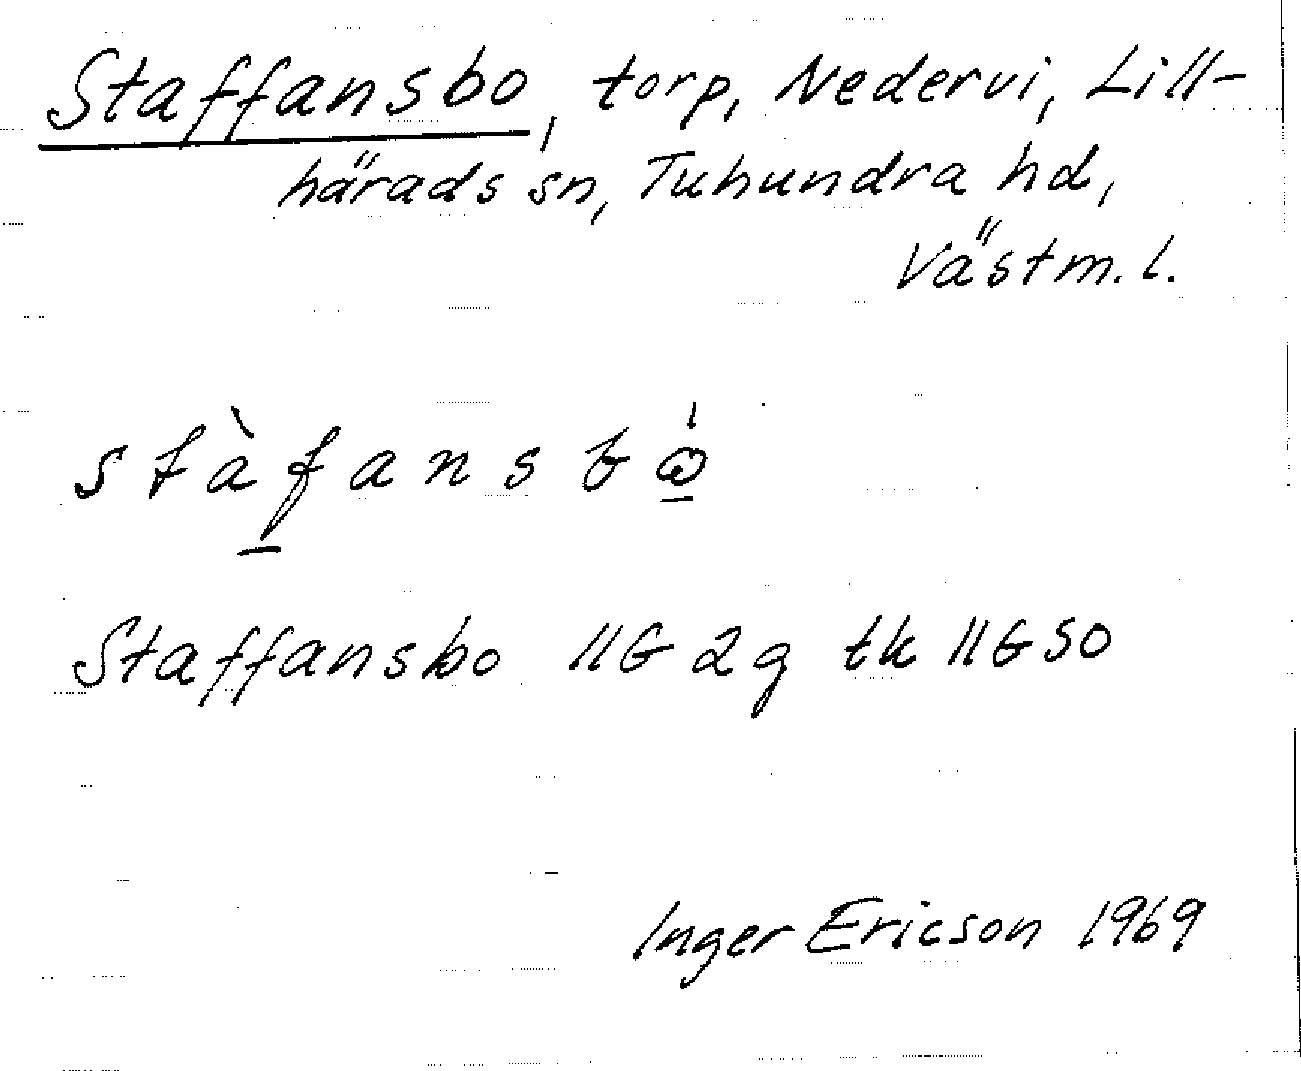 Staffansbo, torp, Nedervi, Lill-
härads sn, Tuhundra hd,
Västm. l.
stàf̲ansbω̲̍
Staffansbo 11G 2g tk 11G SO
Inger Ericson 1969